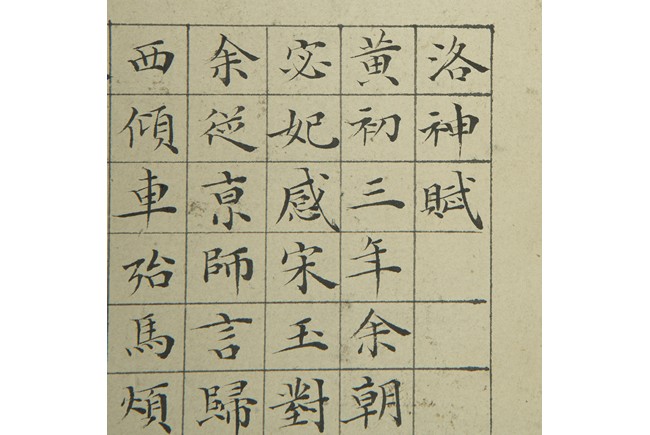 洛神賦
黄初三年余朝
宓妃感宋玉對
余從亰師言歸
西傾車殆馬煩